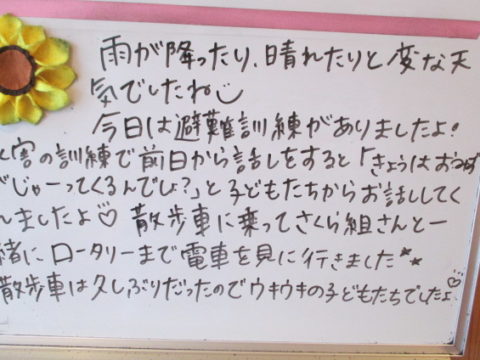 雨が降ったり、晴れたりと変な天
気でしたね
今日は避難訓練がありましたよ!
害の訓練で前日から話しをすると「きょうはおみず
じゃーってくるんでしょ?」と子どもたちからお話ししてく
ましたよ♡ 散歩車に乗ってさくら組さんと一
緒にロータリーまで電車を見に行きました**
散歩車は久しぶりだったのでウキウキの子どもたちでしたよ♡